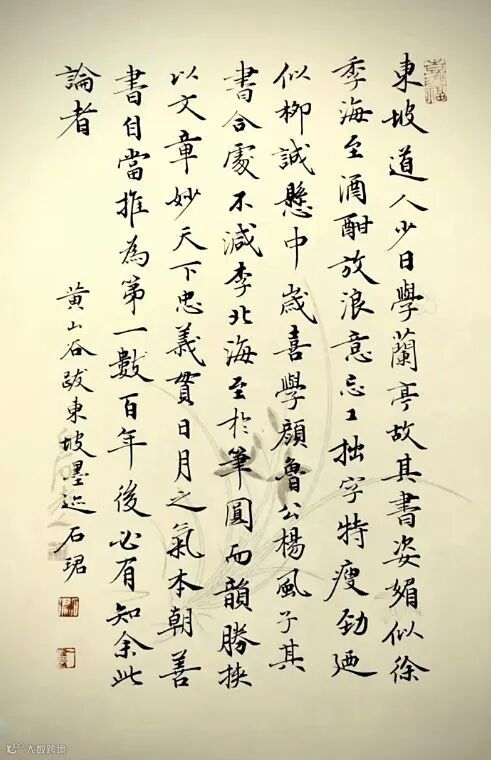 東坡道人少日學蘭亭故其書姿媚似徐
季海至酒酣放浪意忘工拙字特瘦勁廼
似柳誠懸中歲喜學顏魯公楊風子其
書合處不減李北海至於筆圓而韻勝挾
以文章妙天下忠義貫日月之氣本朝善
書自當推為第一數百年後必有知余此
論者
黃山谷跋東坡墨迹 石珺
大数跨境